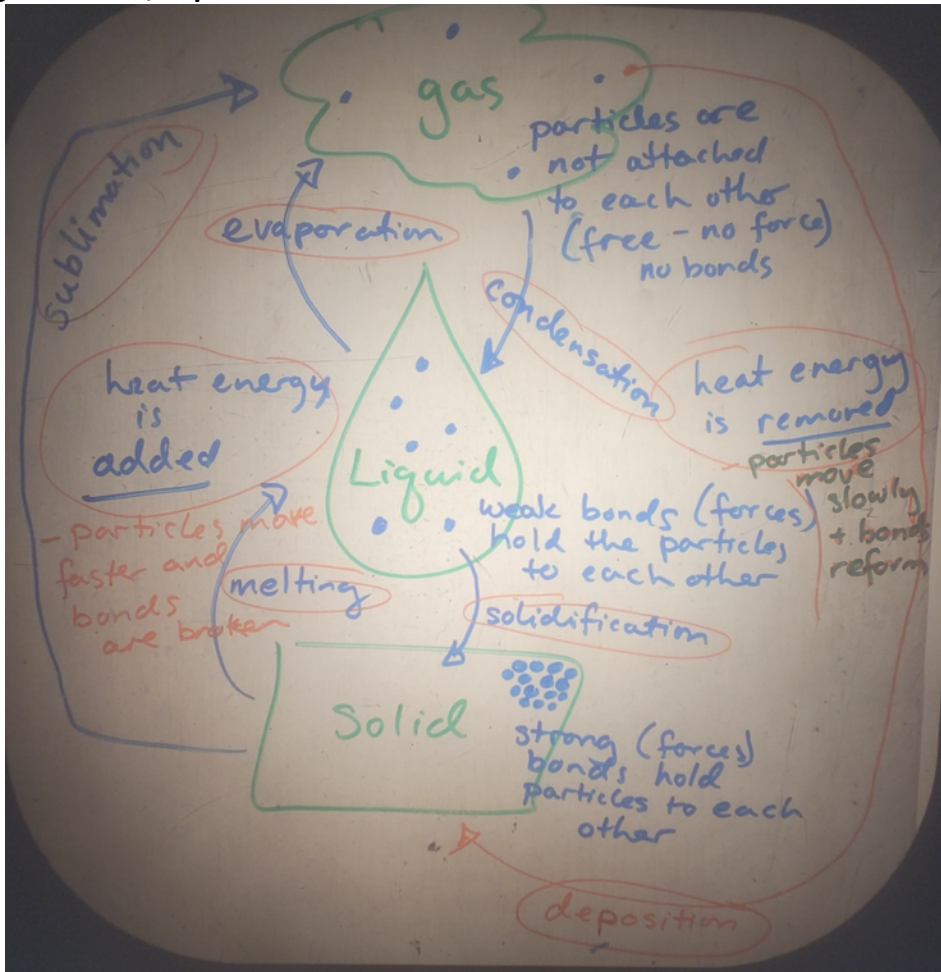 gas
particles are
not attached
to each other
(free - no force)
no bonds
sublimation
evaporation
condensation
heat energy
is
added
- particles move
faster and
bonds
are broken
heat energy
is removed
- particles
move
slowly
+ bonds
reform
Liquid
weak bonds (forces)
hold the particles
to each other
melting
solidification
Solid
strong (forces)
bonds hold
particles to each
other
deposition